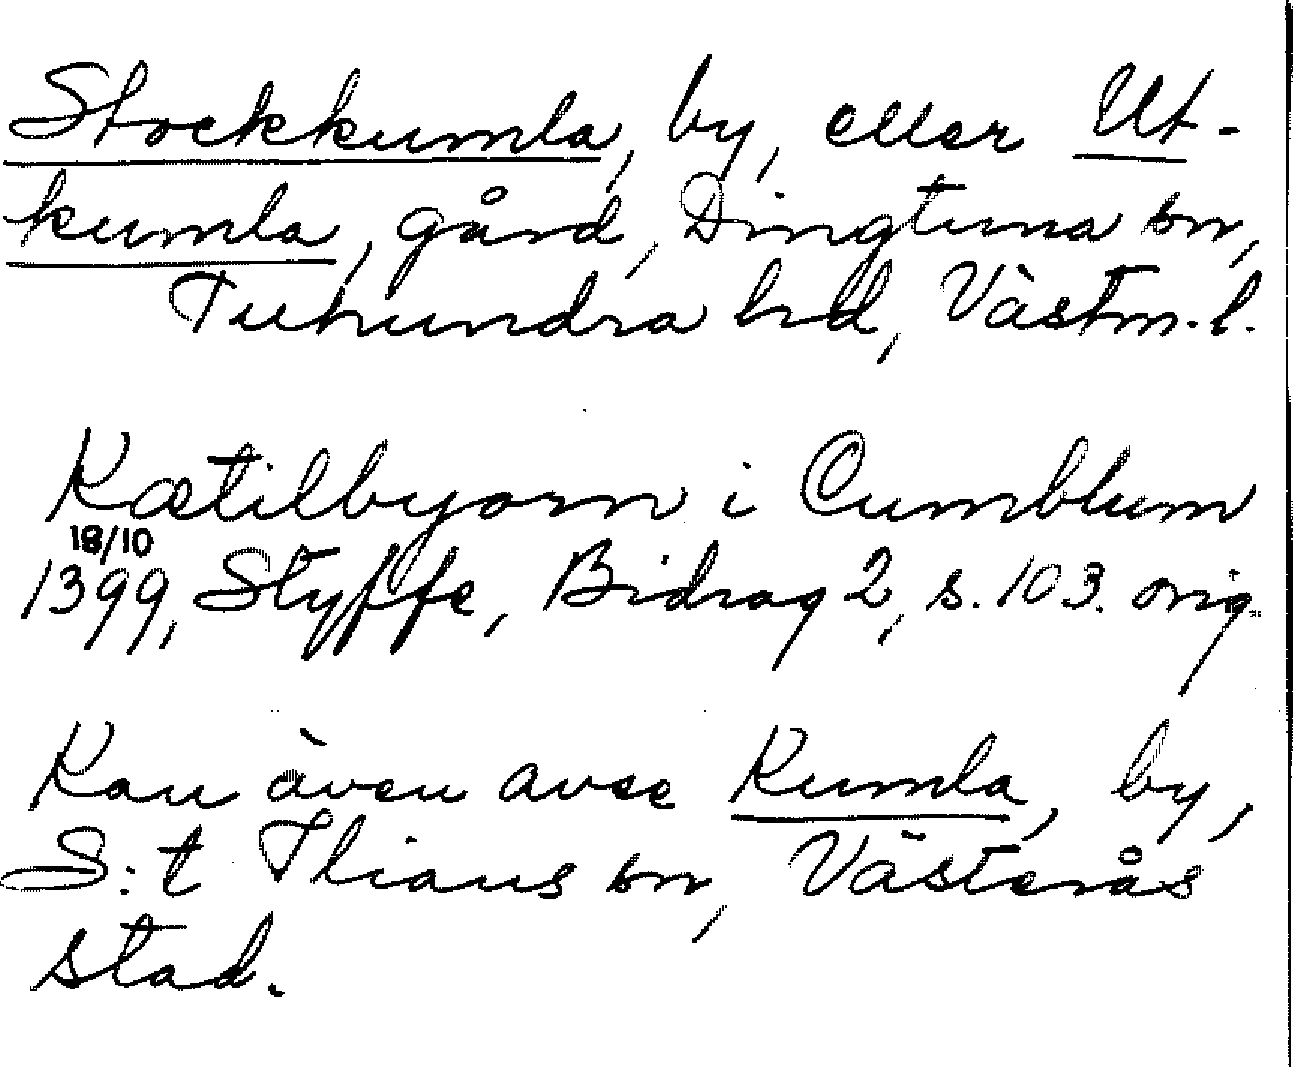 Stockkumla, by, eller Ut-
kumla, gård, Dingtuna sn,
Tuhundra hd, Västm. l.
Kætilbyorn i Cumblum
18/10
1399, Styffe, Bidrag 2, s. 103. orig.
Kan även avse Kumla, by,
S:t Ilians sn, Västerås
stad.